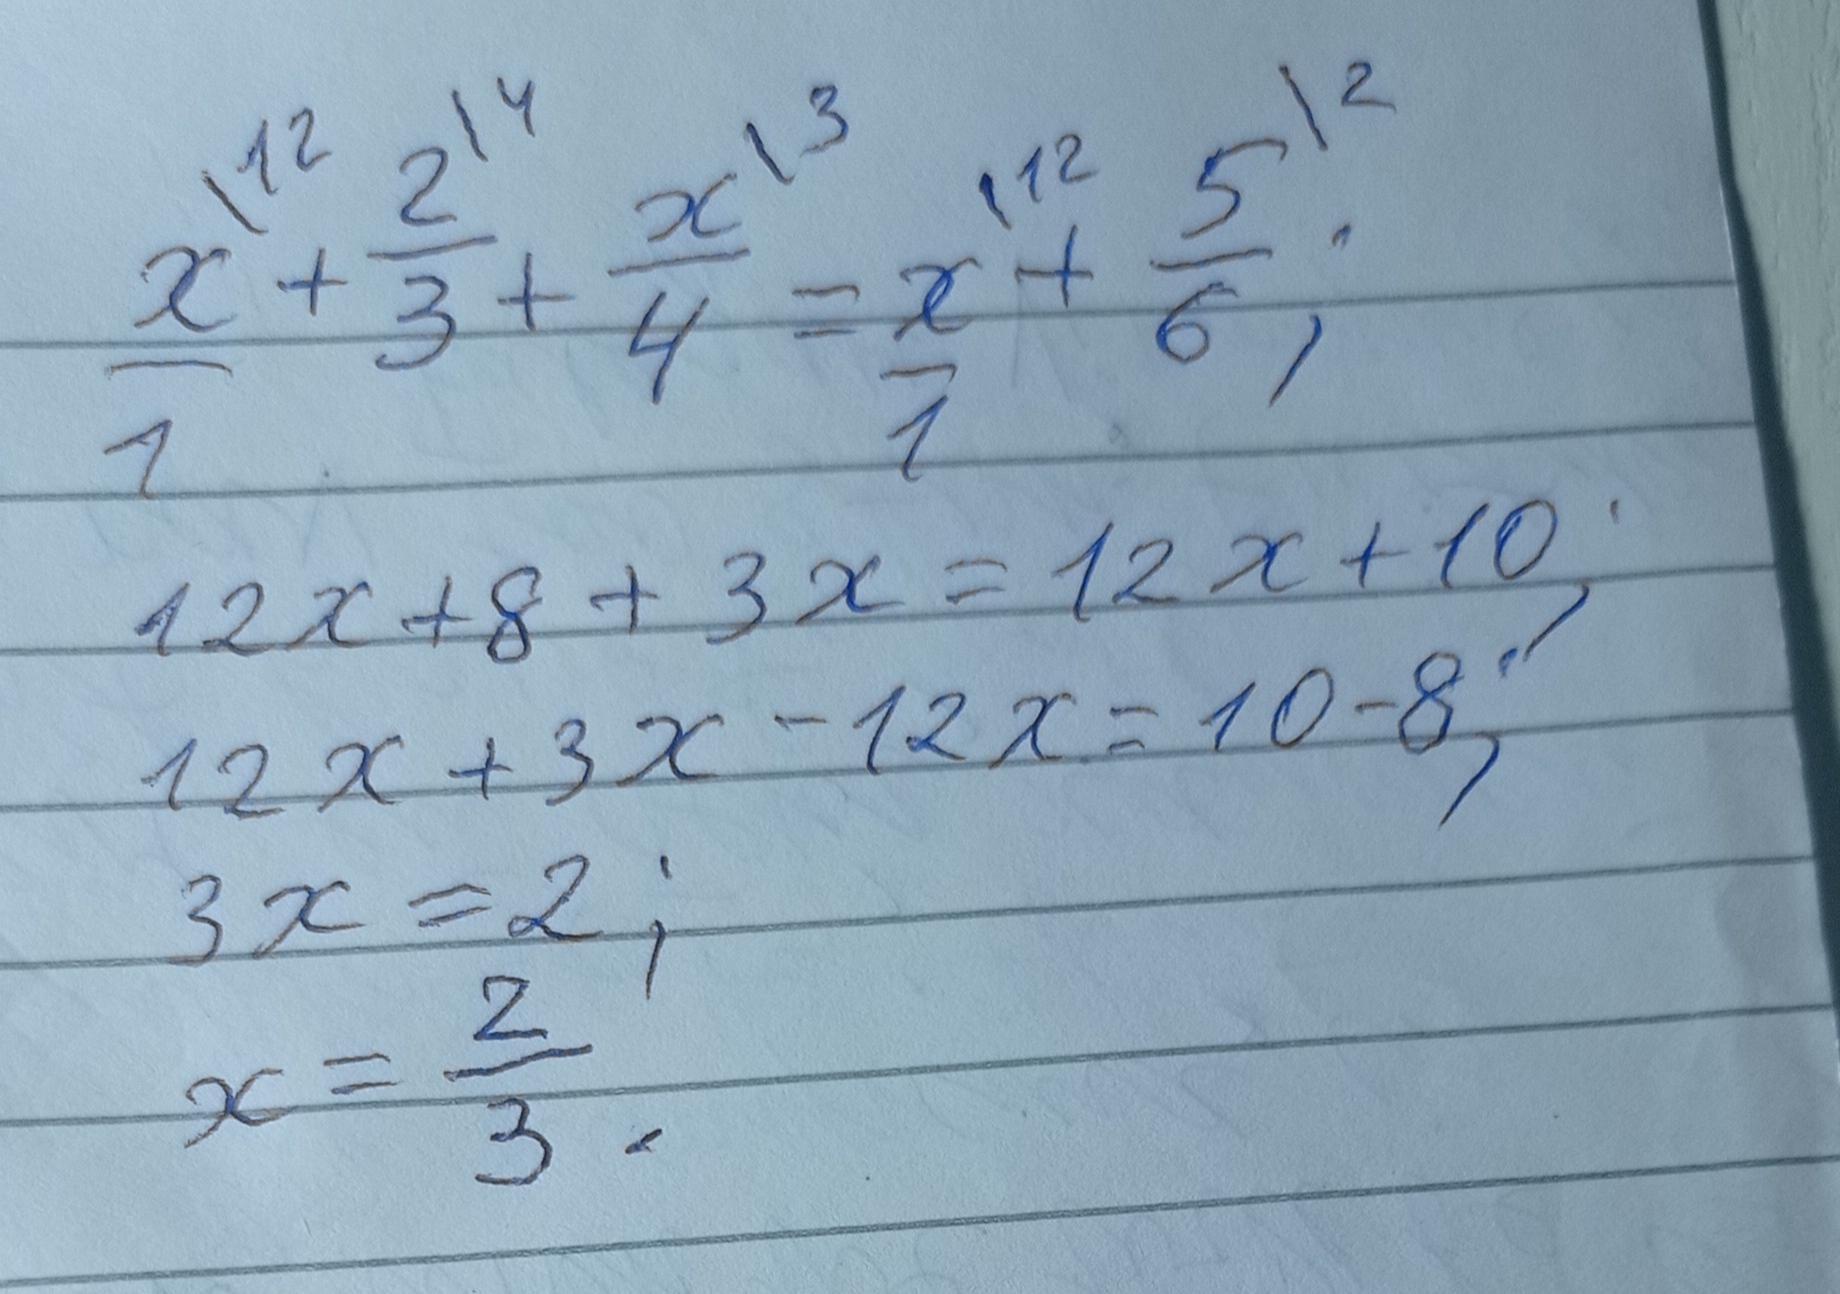 x/1\12 + 2/3\4 + x/4\3 = x/1\12 + 5/6\2;
12x+8+3x=12x+10;
12x+3x-12x=10-8;
3x=2;
x=2/3.